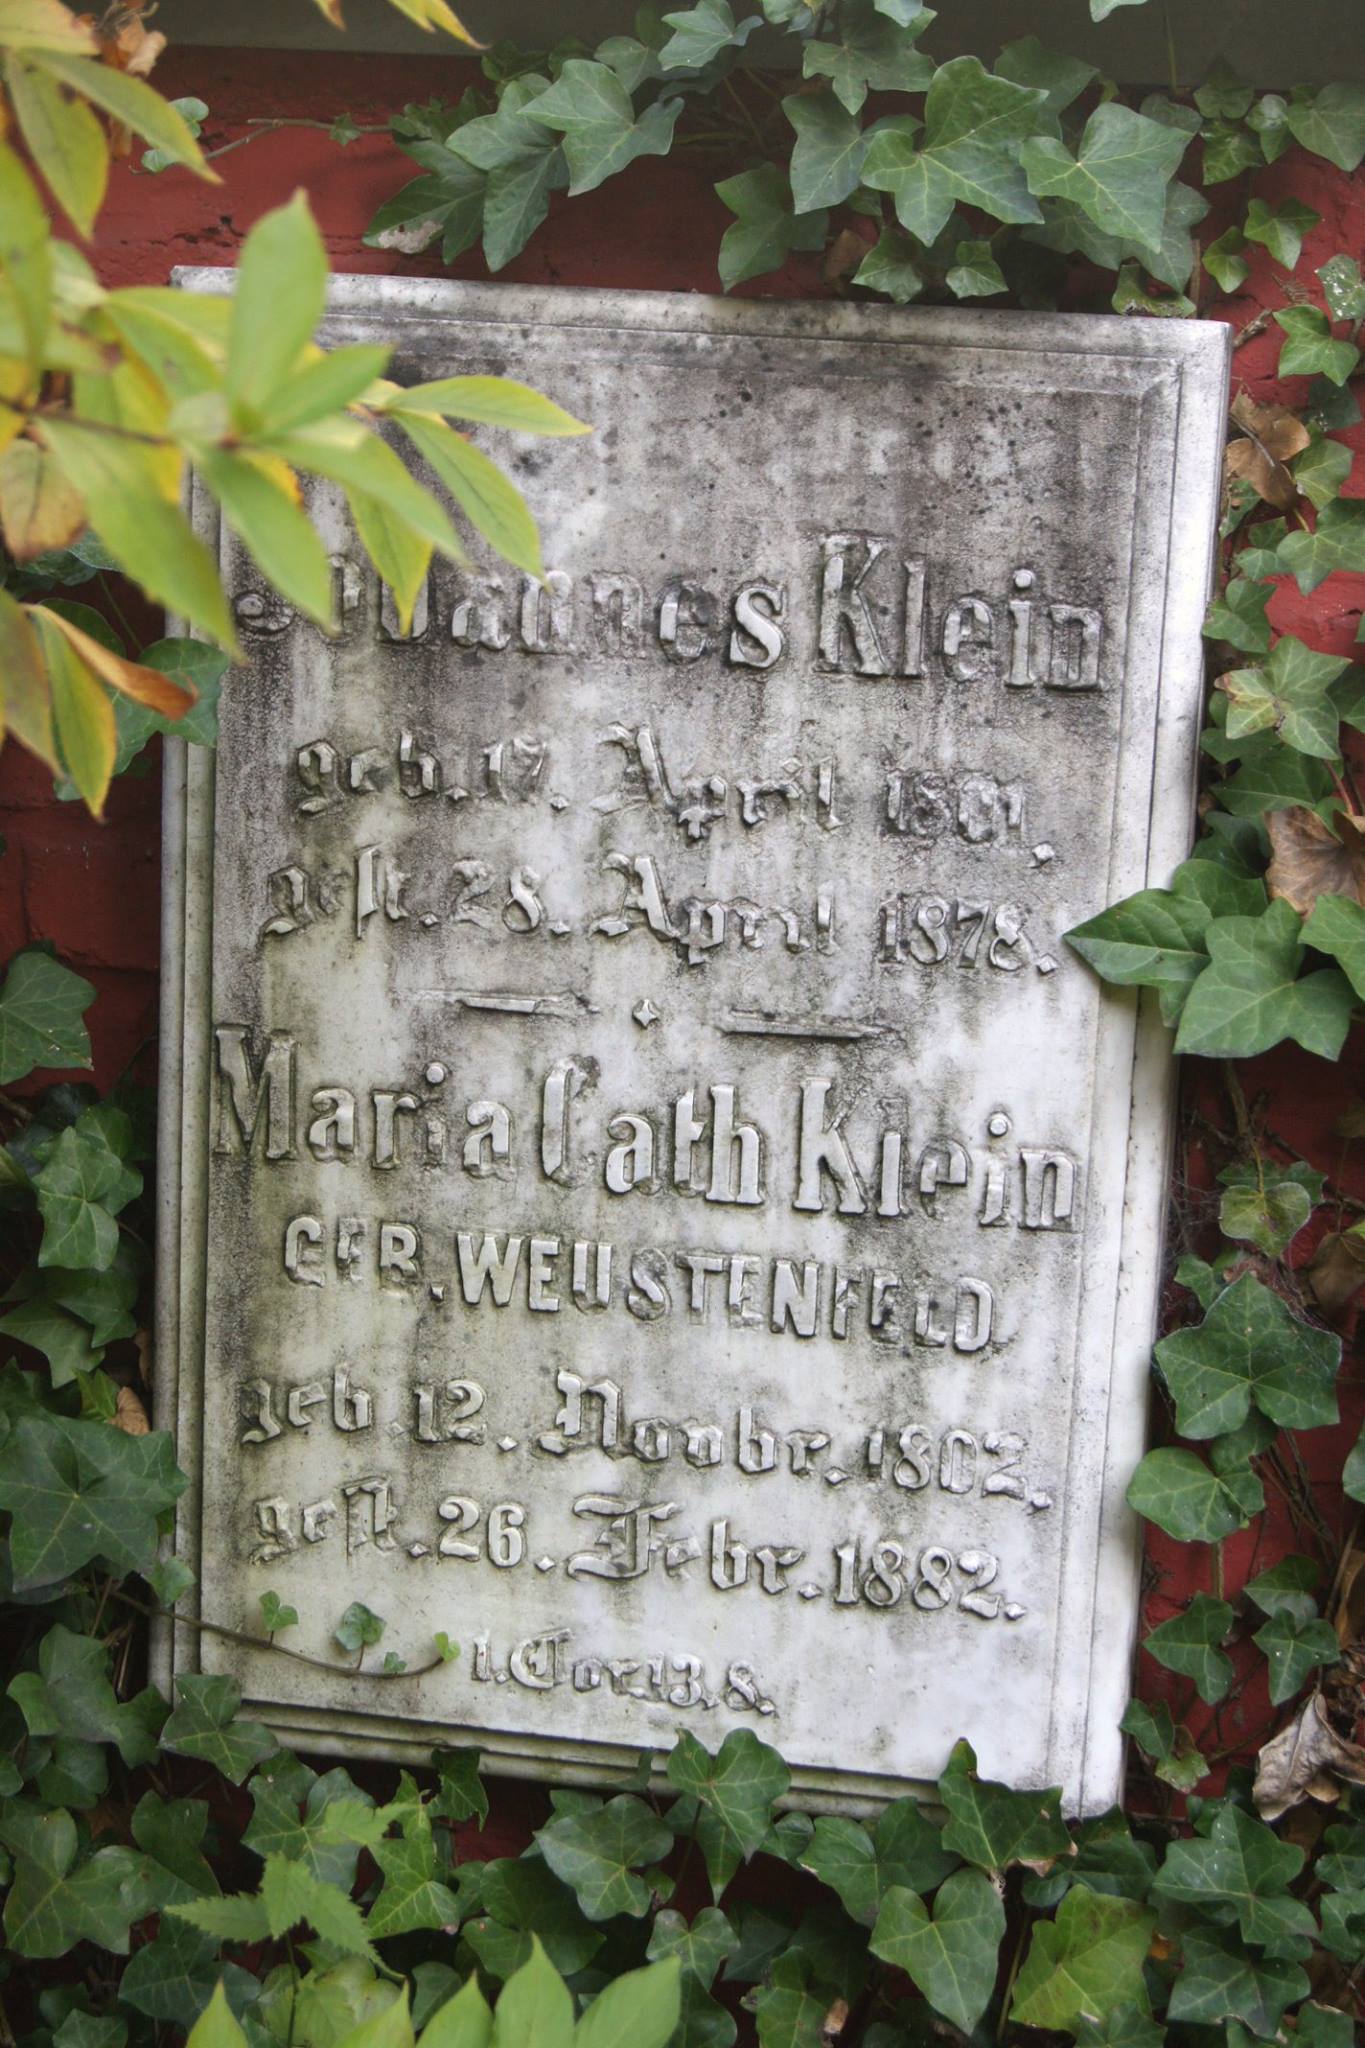 Johannes Klein
geb. 17. April 1801.
gest. 28. April 1878.
Maria Cath Klein
GEB. WEUSTENFELD
geb. 12. Novbr. 1802.
gest. 26. Febr. 1882.
1. Cor. 13, 8.